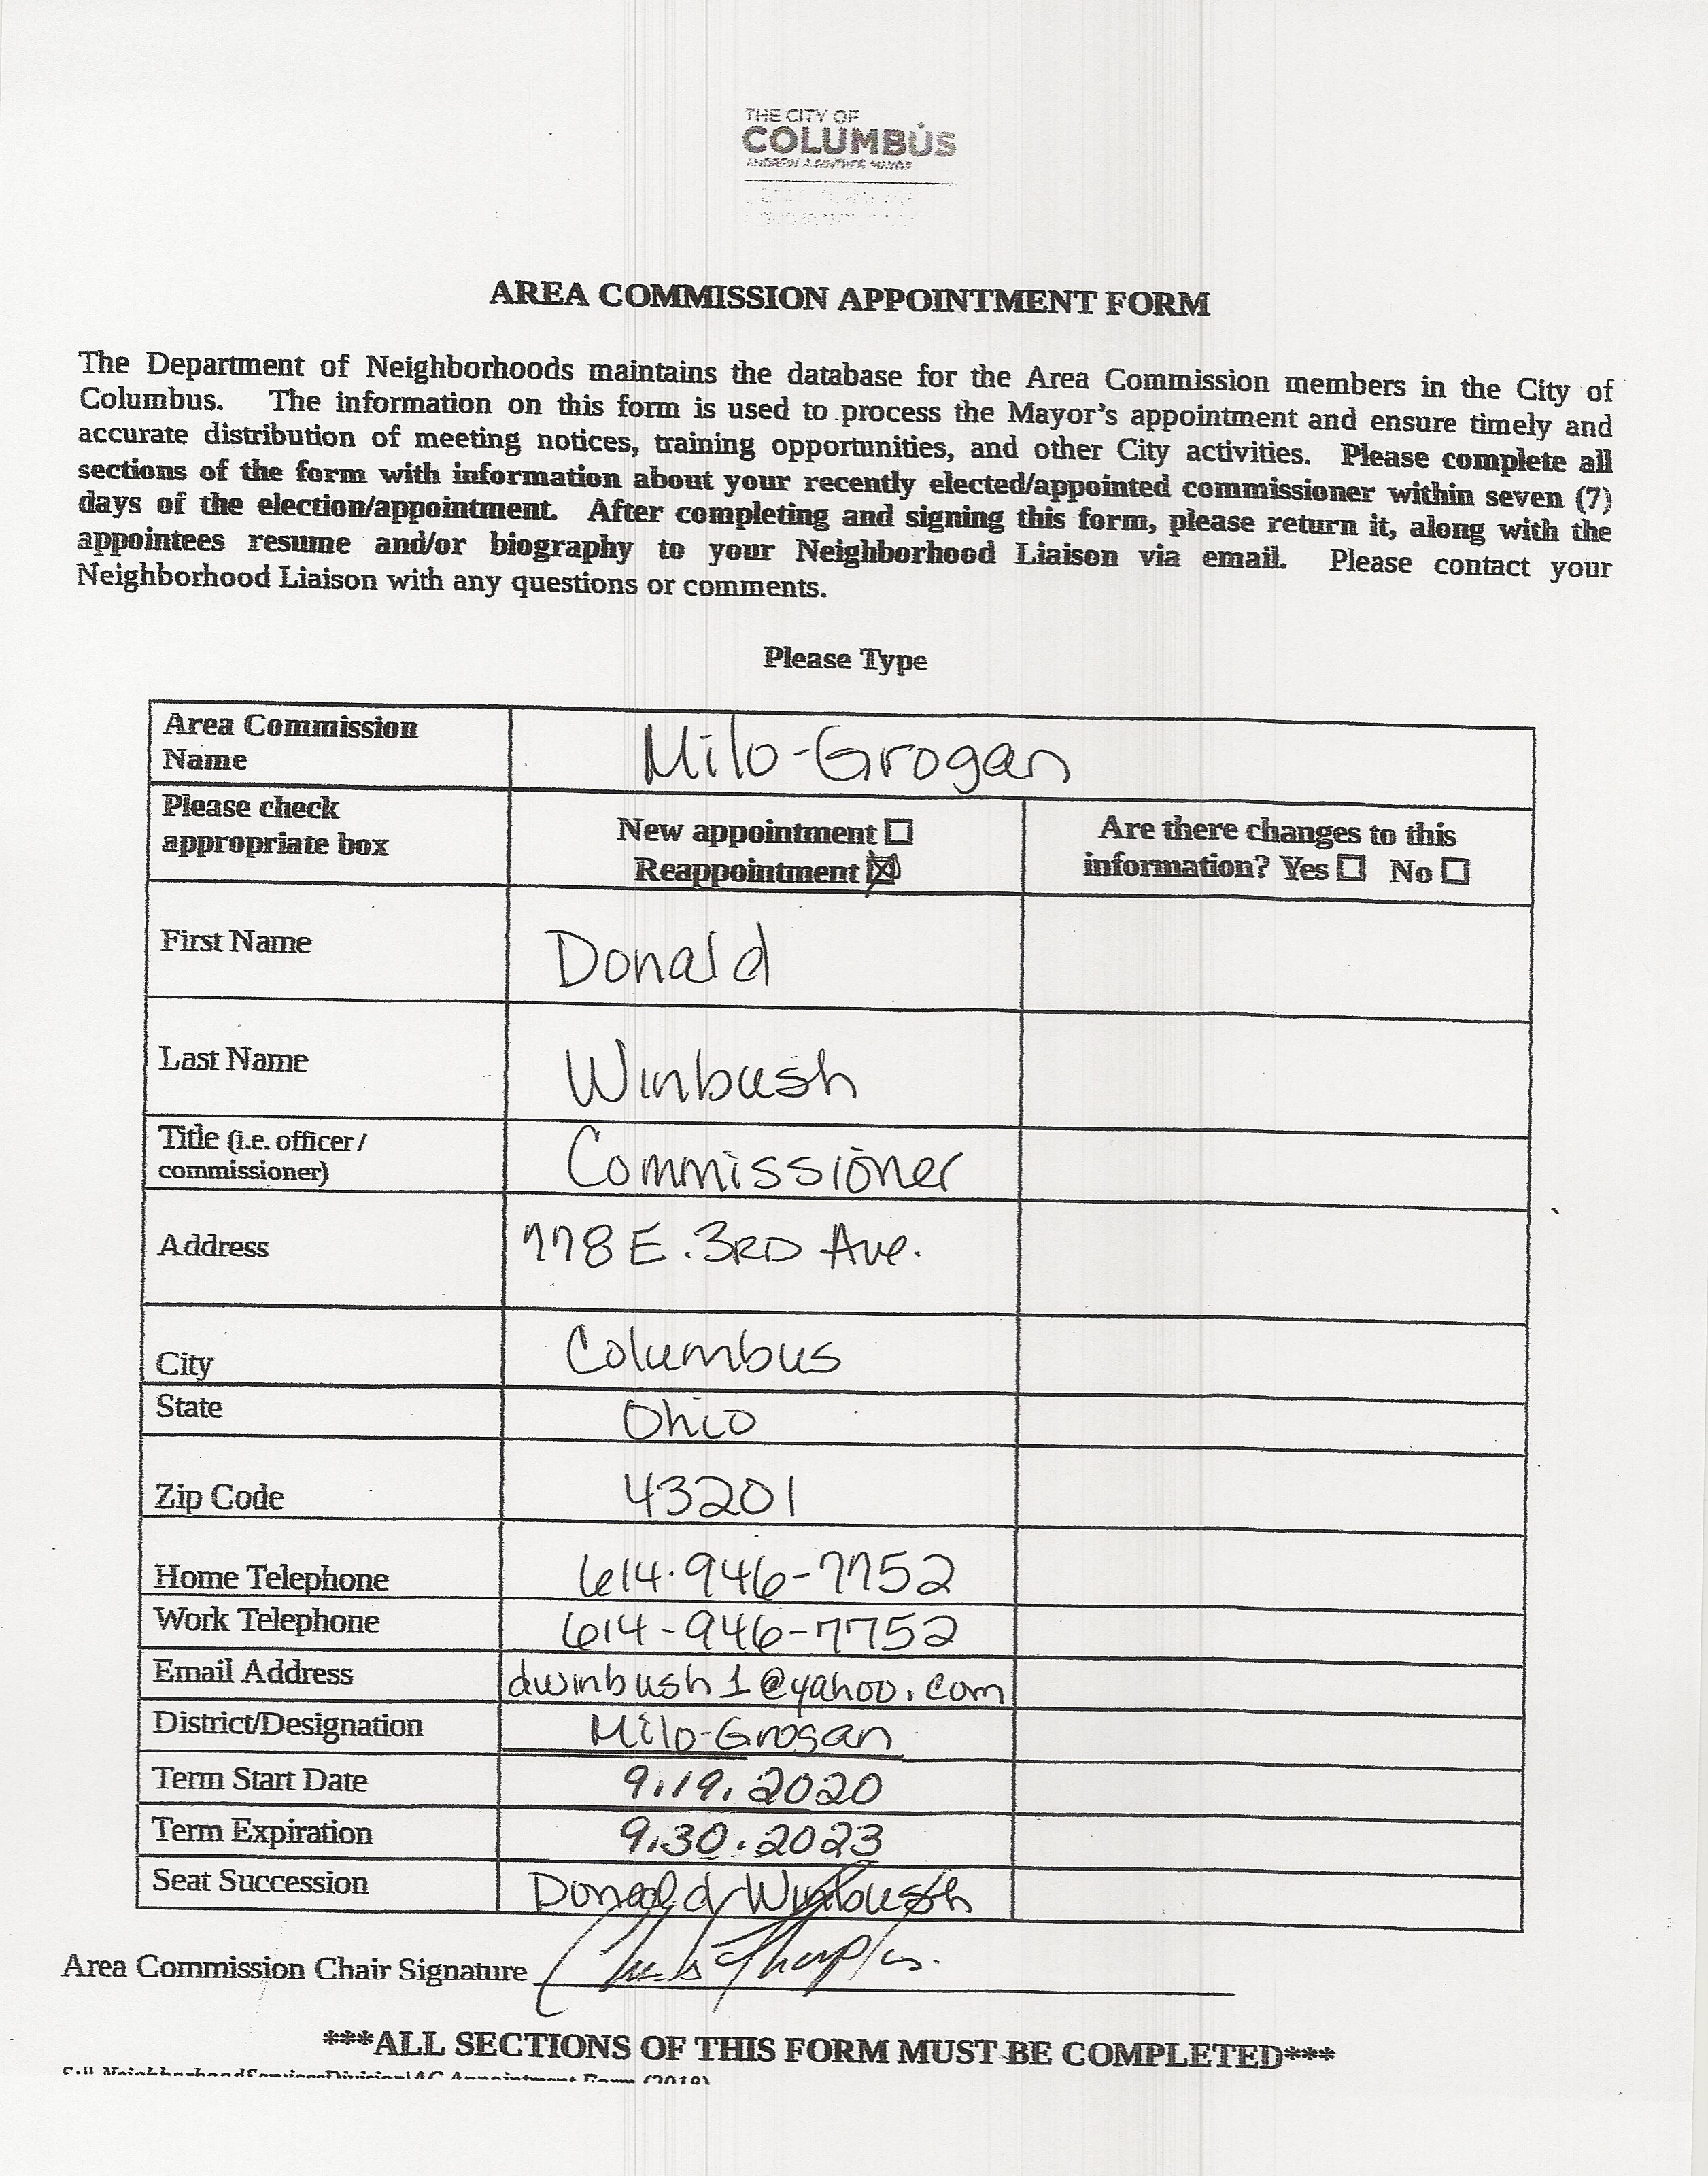 THE CITY OF
COLUMBUS
ANDREW J. GINTHER, MAYOR
AREA COMMISSION APPOINTMENT FORM
The Department of Neighborhoods maintains the database for the Area Commission members in the City of
Columbus. The information on this form is used to process the Mayor's appointment and ensure timely and
accurate distribution of meeting notices, training opportunities, and other City activities. Please complete all
sections of the form with information about your recently elected/appointed commissioner within seven (7)
days of the election/appointment. After completing and signing this form, please return it, along with the
appointees resume and/or biography to your Neighborhood Liaison via email. Please contact your
Neighborhood Liaison with any questions or comments.
Please Type
Area Commission
Name
Milo-Grogan
Please check
appropriate box
New appointment ☐
Reappointment ☒
Are there changes to this
information? Yes ☐ No ☐
First Name
Donald
Last Name
Winbush
Title (i.e. officer/
commissioner)
Commissioner
Address
778 E. 3RD Ave.
City
Columbus
State
Ohio
Zip Code
43201
Home Telephone
614-946-7752
Work Telephone
614-946-7752
Email Address
dwinbush1@yahoo.com
District/Designation
Milo-Grogan
Term Start Date
9.19.2020
Term Expiration
9.30.2023
Seat Succession
Donald Winbush
Area Commission Chair Signature
***ALL SECTIONS OF THIS FORM MUST BE COMPLETED***
NeighborhoodServicesDivision\AC Appointment Form (2018)